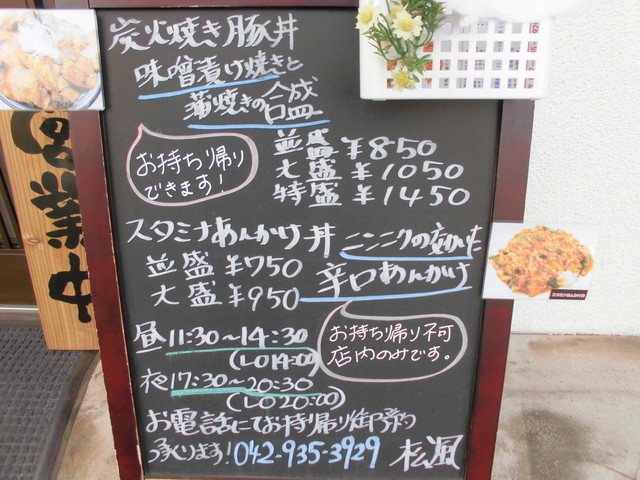 炭火焼き豚丼
味噌漬け焼きと
蒲焼きの合盛
お持ち帰り
できます!
並盛 ¥850
大盛 ¥1050
特盛 ¥1450
スタミナあんかけ丼
ニンニクの効いた
辛口あんかけ
並盛 ¥750
大盛 ¥950
お持ち帰り不可
店内のみです。
昼 11:30~14:30
(LO14:00)
夜 17:30~20:30
(LO20:00)
お電話にてお持ち帰り御予約
承ります! 042-935-3929 松風
営業中